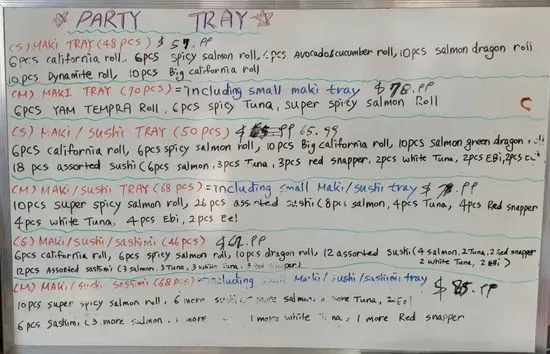 PARTY TRAY
(S) MAKI TRAY (48 PCS) $ 57.99
6pcs california roll, 6pcs spicy salmon roll, 6pcs Avocado&cucumber roll, 10pcs salmon dragon roll
10pcs Dynamite roll, 10pcs Big california roll
(M) MAKI TRAY (70PCS) = including small maki tray $ 78.99
6PCS YAM TEMPRA Roll, 6pcs spicy Tuna, super spicy salmon Roll
(S) MAKI / sushi TRAY (50 PCS) 65.99
6pcs california roll, 6pcs spicy salmon roll, 10pcs Big california roll, 10pcs salmon green dragon
18 pcs assorted sushi (6pcs salmon, 3pcs Tuna, 3pcs red snapper, 2pcs white Tuna, 2pcs EBi, 2pcs
(M) MAKi/sushi TRAY (68 PCS) = including small Maki/sushi tray $ .99
10pcs super spicy salmon roll, 26pcs assorted sushi (8pcs salmon, 4pcs Tuna, 4pcs Red snapper
4pcs white Tuna, 4pcs Ebi, 2pcs Eel
(S) MAKi/sushi/sashimi (46pcs) $ 62.99
6pcs california roll, 6pcs spicy salmon roll, 10pcs dragon roll, 12 assorted sushi (4 salmon, 2Tuna, 2 Red snapper
2 white Tuna, 2 EBi)
12pcs Assorted sashimi (3 salmon, 3Tuna, 3 white Tuna, 3 Red snapper)
(M) MAKi/sushi sashimi (68pcs) = including small Maki/sushi/sashimi tray $ 85.99
10pcs super spicy salmon roll, 6 more sushi more salmon, more Tuna, 2Eel
6 pcs Sashimi (3 more salmon, 1 more 1 more white Tuna, 1 more Red snapper